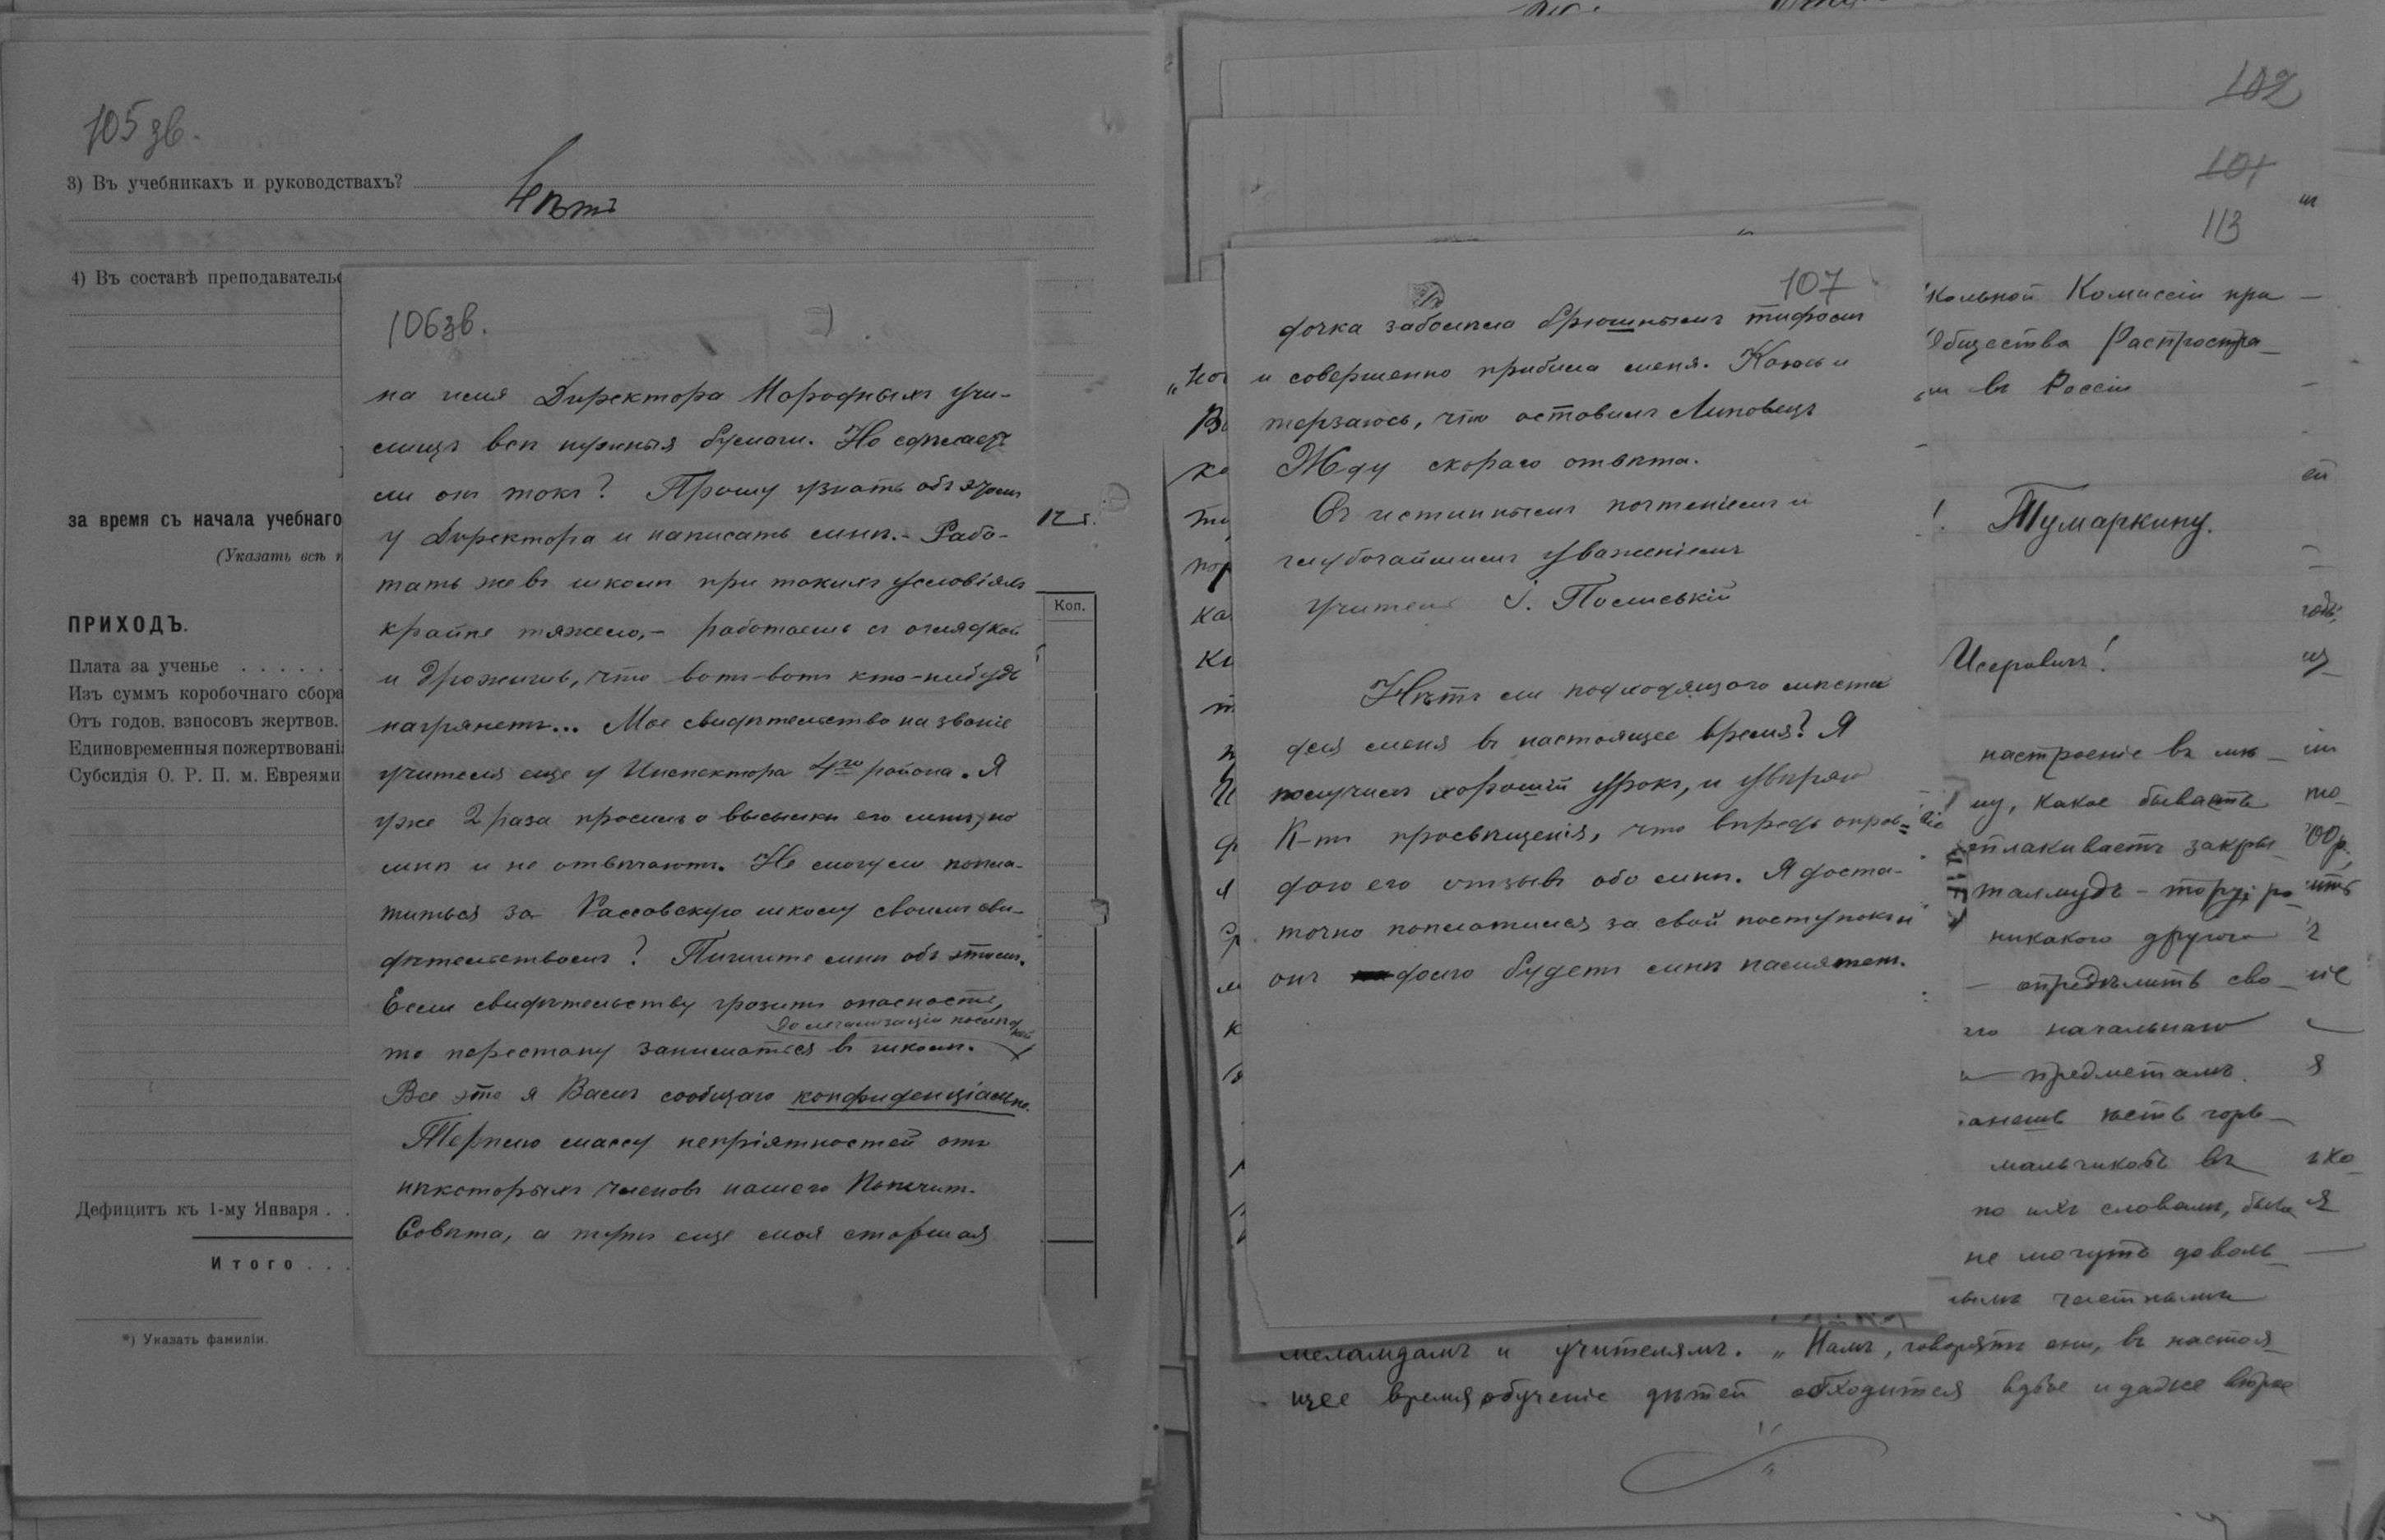 105 зв.
3) Въ учебникахъ и руководствахъ?
Нѣтъ
4) Въ составѣ преподавательс
за время съ начала учебнаго
12 г.
(Указать всѣ п
ПРИХОДЪ.
Коп.
Плата за ученье . . . . . .
Изъ суммъ коробочнаго сбора
Отъ годов. взносовъ жертвов.
Единовременныя пожертвованія
Субсидія О. Р. П. м. Евреями
Дефицитъ къ 1-му Января . .
Итого . . .
*) Указать фамиліи.
106 зв.
на имя Директора Народныхъ Учи-
лищъ всѣ нужныя бумаги. Но сдѣлаетъ
ли онъ такъ? Прошу узнать объ этомъ
у Директора и написать мнѣ. - Рабо-
тать же въ школѣ при такихъ условіяхъ
крайне тяжело, - работаешь съ оглядкой
и дрожишь, что вотъ-вотъ кто-нибудь
нагрянетъ... Мое свидѣтельство на званіе
учителя еще у Инспектора 4го района. Я
уже 2 раза просилъ о высылкѣ его мнѣ, но
мнѣ и не отвѣчаютъ. Не могу ли попла-
титься за Рассовскую школу своимъ сви-
дѣтельствомъ? Пишите мнѣ объ этомъ.
Если свидѣтельству грозитъ опасность,
до легализаціи послѣдней
то перестану заниматься въ школѣ.
Все это я Вамъ сообщаю конфиденціально.
Терплю массу непріятностей отъ
нѣкоторыхъ членовъ нашего Попечит.
Совѣта, а теперь еще моя старшая
107
дочка заболѣла брюшнымъ тифомъ
и совершенно прибила меня. Каюсь и
терзаюсь, что оставилъ Липовецъ
Жду скораго отвѣта.
Съ истиннымъ почтеніемъ и
глубочайшимъ уваженіемъ
учитель І.
Нѣтъ ли подходящаго мѣста
для меня въ настоящее время? Я
получилъ хорошій урокъ, и увѣряю
К-тъ просвѣщенія, что впредь оправ=
даю его отзывъ обо мнѣ. Я доста-
точно поплатился за свой поступокъ и
онъ долго будетъ мнѣ памятенъ.
102
101
113
кольной Комиссіи при
Общества Распростра-
въ Россіи
Тумаркину.
Исеровичъ!
настроеніе въ мѣ-
му, какое бываетъ
оплакиваетъ закры-
талмудъ-тору; ро-
никакого другого
- опредѣлить сво-
го начальнаго
предметамъ.
мальчиковъ въ
по ихъ словамъ, была
не могутъ доволь-
частными
меламдамъ и учителямъ. „Намъ, говорятъ они, въ настоя-
щее время обученіе дѣтей обходится вдвое и даже втрое